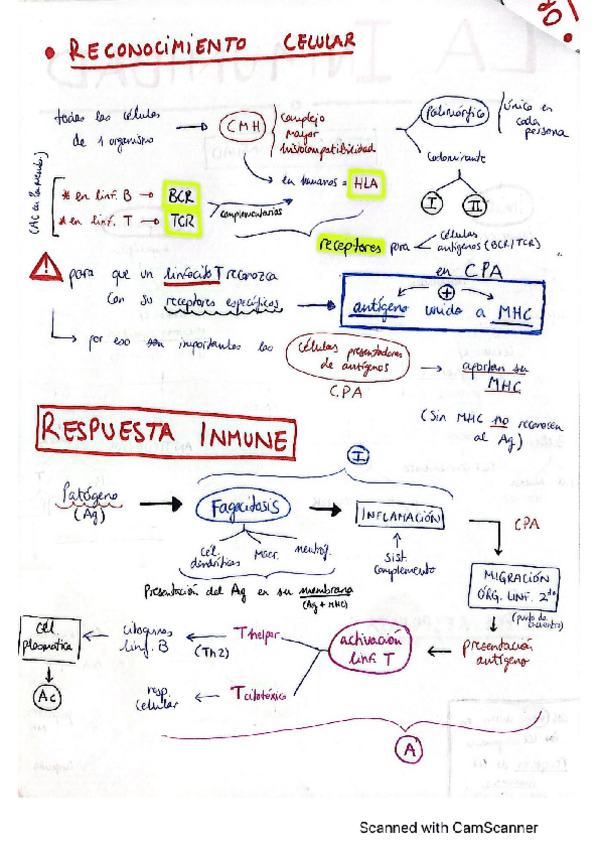 • RECONOCIMIENTO CELULAR
todas las células
de 1 organismo
CMH
complejo
mayor
histocompatibilidad
Polimórfico
único en
cada
persona
Codominante
I
II
en humanos = HLA
(Ac en la membr.)
* en linf. B → BCR
* en linf. T → TCR
complementarios
receptores para
células
antígenos (BCR/TCR)
para que un linfocito T reconozca
con su receptores específicos
en CPA
+
antígeno unido a MHC
por eso son importantes las
células presentadoras
de antígenos
CPA
aportan su
MHC
(Sin MHC no reconocen
al Ag)
RESPUESTA INMUNE
I
Patógeno
(Ag)
Fagocitosis
INFLAMACIÓN
CPA
cél.
dendríticas
Macr.
neutróf.
Sist.
complemento
Presentación del Ag en su membrana
(Ag + MHC)
MIGRACIÓN
ÓRG. LINF. 2do
(punto de
encuentro)
presentación
antígeno
activación
linf. T
T helper
(Th2)
citoquinas
linf. B
cél
plasmática
Ac
T citotóxico
resp.
celular
A
Scanned with CamScanner